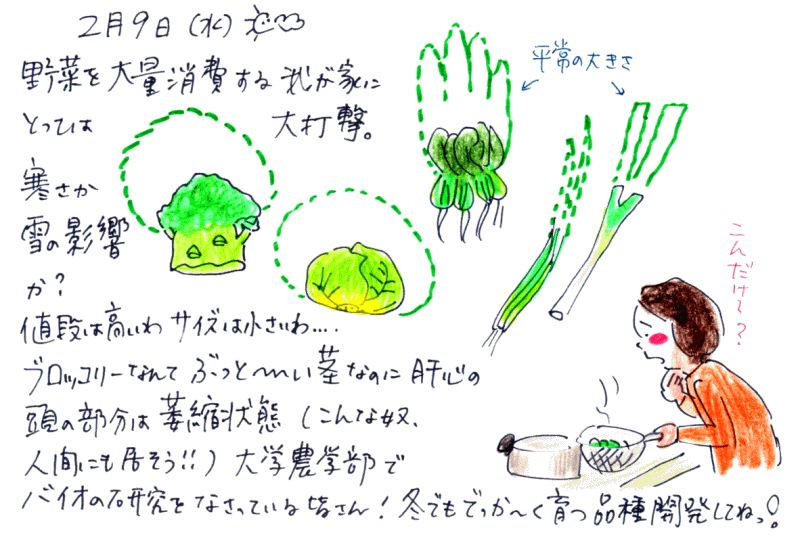 2月9日(水)
野菜を大量消費する我が家に
とっては 大打撃。
寒さか
雪の影響
か?
値段は高いわ サイズは小さいわ….
ブロッコリーなんて ぶっと〜〜い茎なのに 肝心の
頭の部分は萎縮状態 (こんな奴、
人間にも居そう!!) 大学農学部で
バイオの研究をなさっている皆さん! 冬でもでっか〜く育つ品種開発してねっ!
平常の大きさ
こんだけ〜?